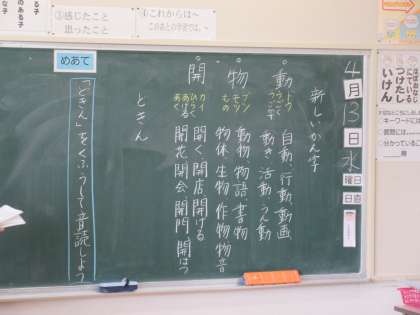 4月13日水曜日
日直
新しいかん字
動 ドウ うごく うごかす
自動、行動、動画、
動き、活動、うん動
物 ブツ モツ もの
動物、物語、書物
物体、生物、作物、物音
開 カイ ひらく あける あく
開く、開店、開ける
開花、開会、開門、開はつ
ときん
めあて
「どきん」をくふうして音読しよう
③感じたこと
思ったこと
④これからは～
このあとの学習では、～
つけたし
いけん
キーワードに